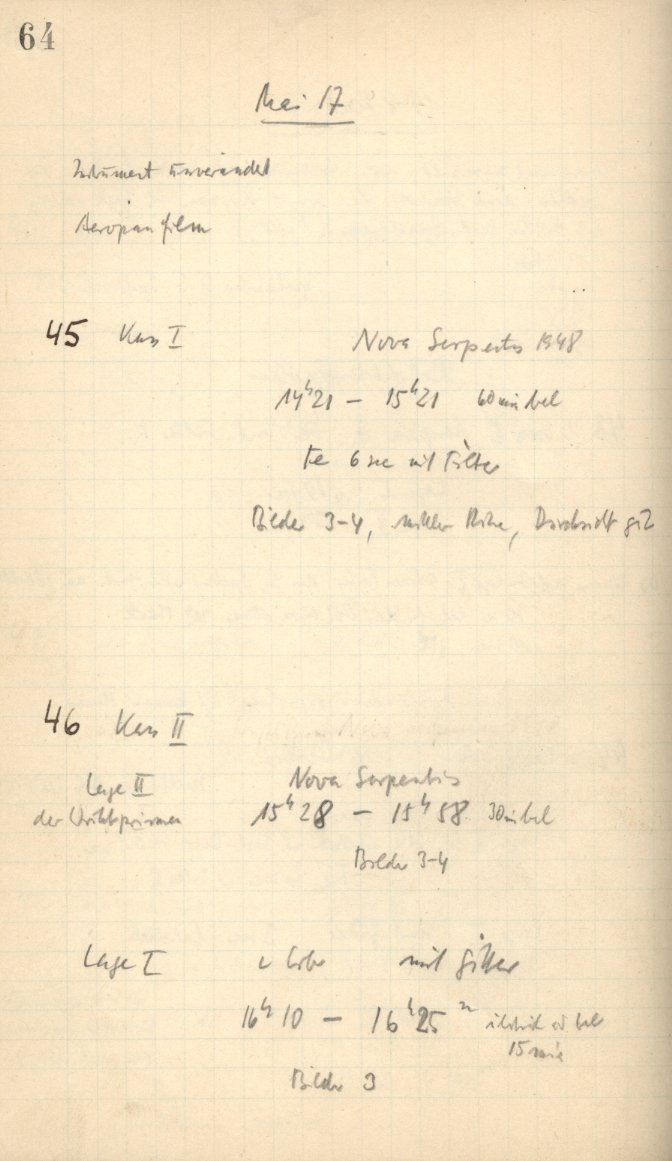 64
Mai 17
Instrument unverändert
Aeropan film
45 Kass I Nova Serpentis 1948
14h21 – 15h21 60 min bel
Fe 6 sec mit Filter
Bilder 3-4, mittlere Ruhe, Durchsicht gut
46 Kass II
Lage II Nova Serpentis
der 15h28 – 15h58 30 min bel
Bilder 3-4
Lage I mit Gitter
16h10 – 16h25 bel
15 min
Bilder 3